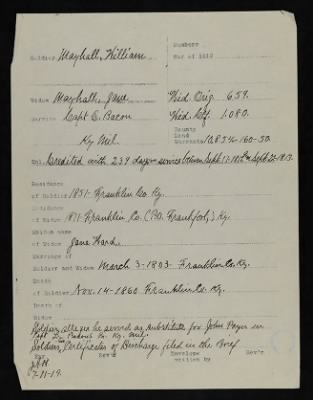 Numbers
Soldier Mayhall, William War of 1812
Widow Mayhall, Jane Wid. Orig. 659.
Service Capt E. Bacon Wid. Ctf. 1080.
Ky Mil. Bounty
Land
Warrants 10.854-160-50.
Credited with 239 days service between Sept. 1st 1812 Sept. 22-1813.
Residence
of Soldier 1851-Franklin Co. Ky.
Residence
of Widow 1871-Franklin Co. (P.O. Frankfort,) Ky.
Maiden name
of Widow Jane Ward
Marriage of
Soldier and Widow March 3-1803-Franklin Co. Ky.
Death
of Soldier Nov. 14-1860 Franklin Co. Ky.
Death of
Widow
Soldier alleges he served as substitute for John Payer in
Capt Co. Ky. Mil.
Soldiers Certificates of Discharge filed in the Brief
War Rev'r Envelope Rev'r
written by
7-11-19.